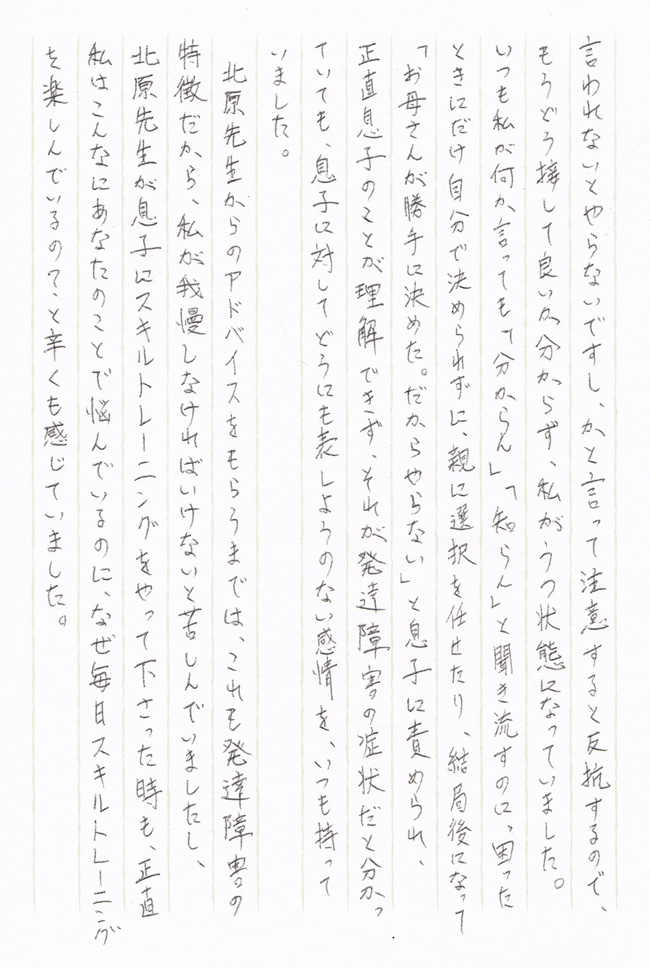 言われないとやらないですし、かと言って注意すると反抗するので、
もうどう接して良いか分からず、私がうつ状態になっていました。
いつも私が何か言っても「分からん」「知らん」と聞き流すのに、困った
ときにだけ自分で決められずに、親に選択を任せたり、結局後になって
「お母さんが勝手に決めた。だからやらない」と息子に責められ、
正直息子のことが理解できず、それが発達障害の症状だと分かっ
ていても、息子に対してどうにも表しようのない感情を、いつも持って
いました。
北原先生からのアドバイスをもらうまでは、これも発達障害の
特徴だから、私が我慢しなければいけないと苦しんでいましたし、
北原先生が息子にスキルトレーニングをやって下さった時も、正直
私はこんなにあなたのことで悩んでいるのに、なぜ毎日スキルトレーニング
を楽しんでいるの?と辛くも感じていました。